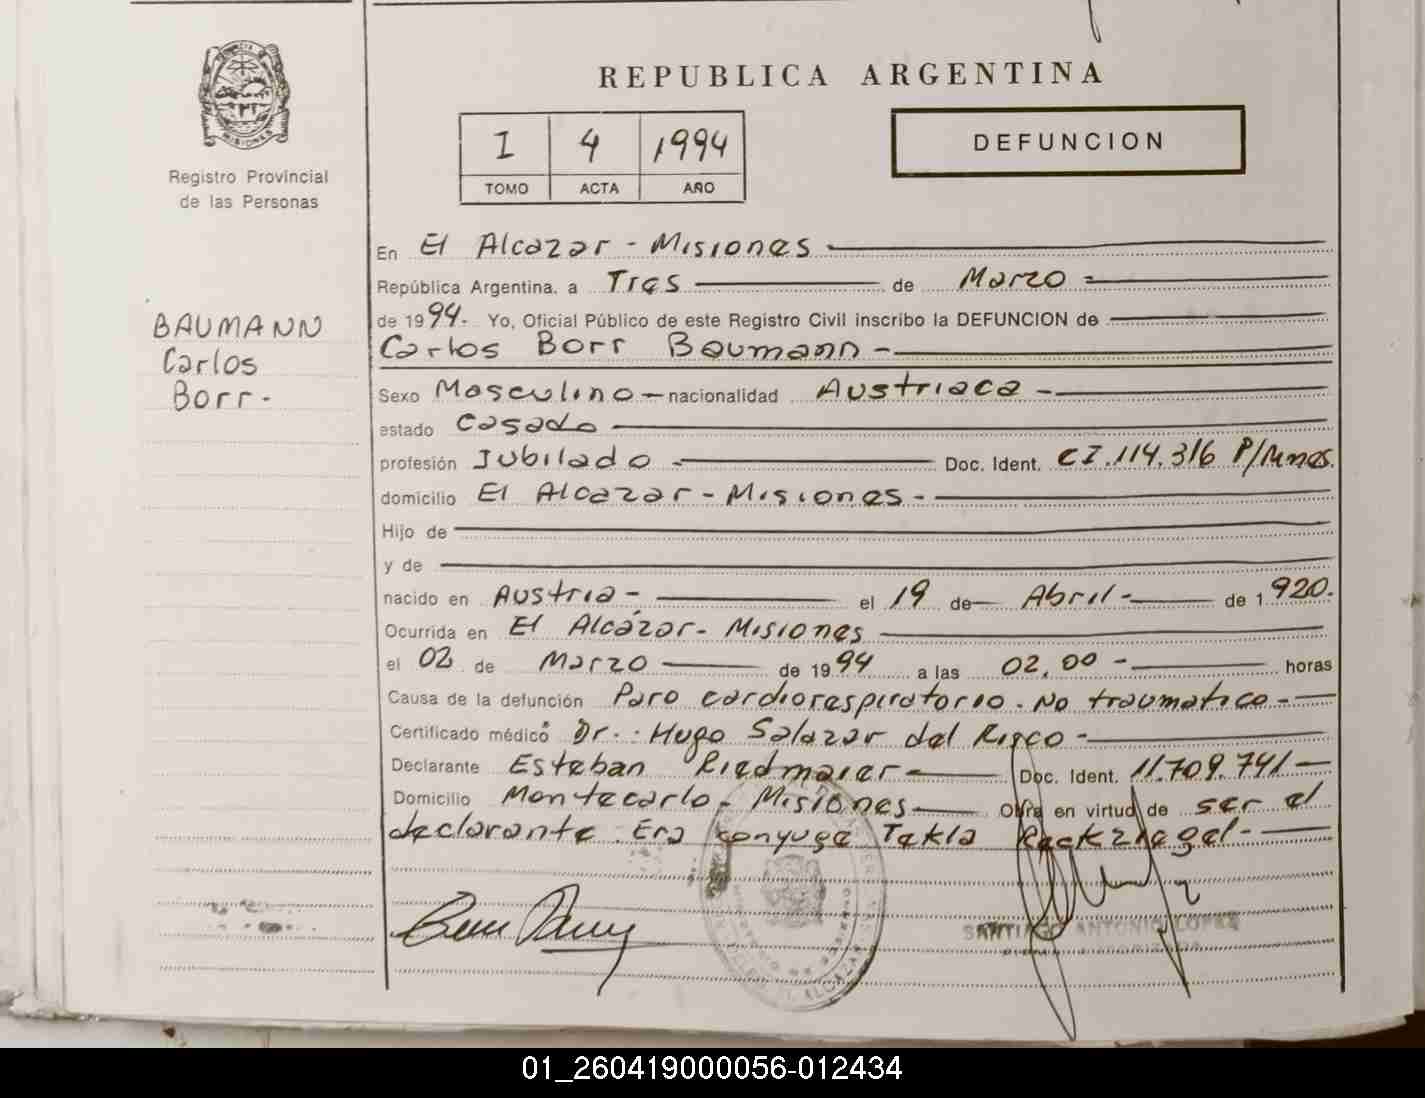 REPUBLICA ARGENTINA
I 4 1994
TOMO ACTA AÑO
DEFUNCION
MISIONES
Registro Provincial
de las Personas
BAUMANN
Carlos
Borr-
En El Alcazar - Misiones
República Argentina, a Tres de Marzo
de 1994- Yo, Oficial Público de este Registro Civil inscribo la DEFUNCION de
Carlos Borr Baumann -
Sexo Masculino - nacionalidad Austriaca -
estado Casado
profesión Jubilado - Doc. Ident. CI.114.316 P/Mnes.
domicilio El Alcazar - Misiones -
Hijo de
y de
nacido en Austria - el 19 de Abril - de 1920.
Ocurrida en El Alcázar - Misiones
el 02 de Marzo de 1994 a las 02,00 - horas
Causa de la defunción Paro cardiorespiratorio. No traumatico -
Certificado médico Dr. Hugo Salazar del Risco -
Declarante Esteban Riedmaier Doc. Ident. 11.709.741
Domicilio Montecarlo - Misiones Obra en virtud de ser el
declarante. Era conyuge Tekla -
SANTIAGO ANTONIO LOPEZ
01_260419000056-012434